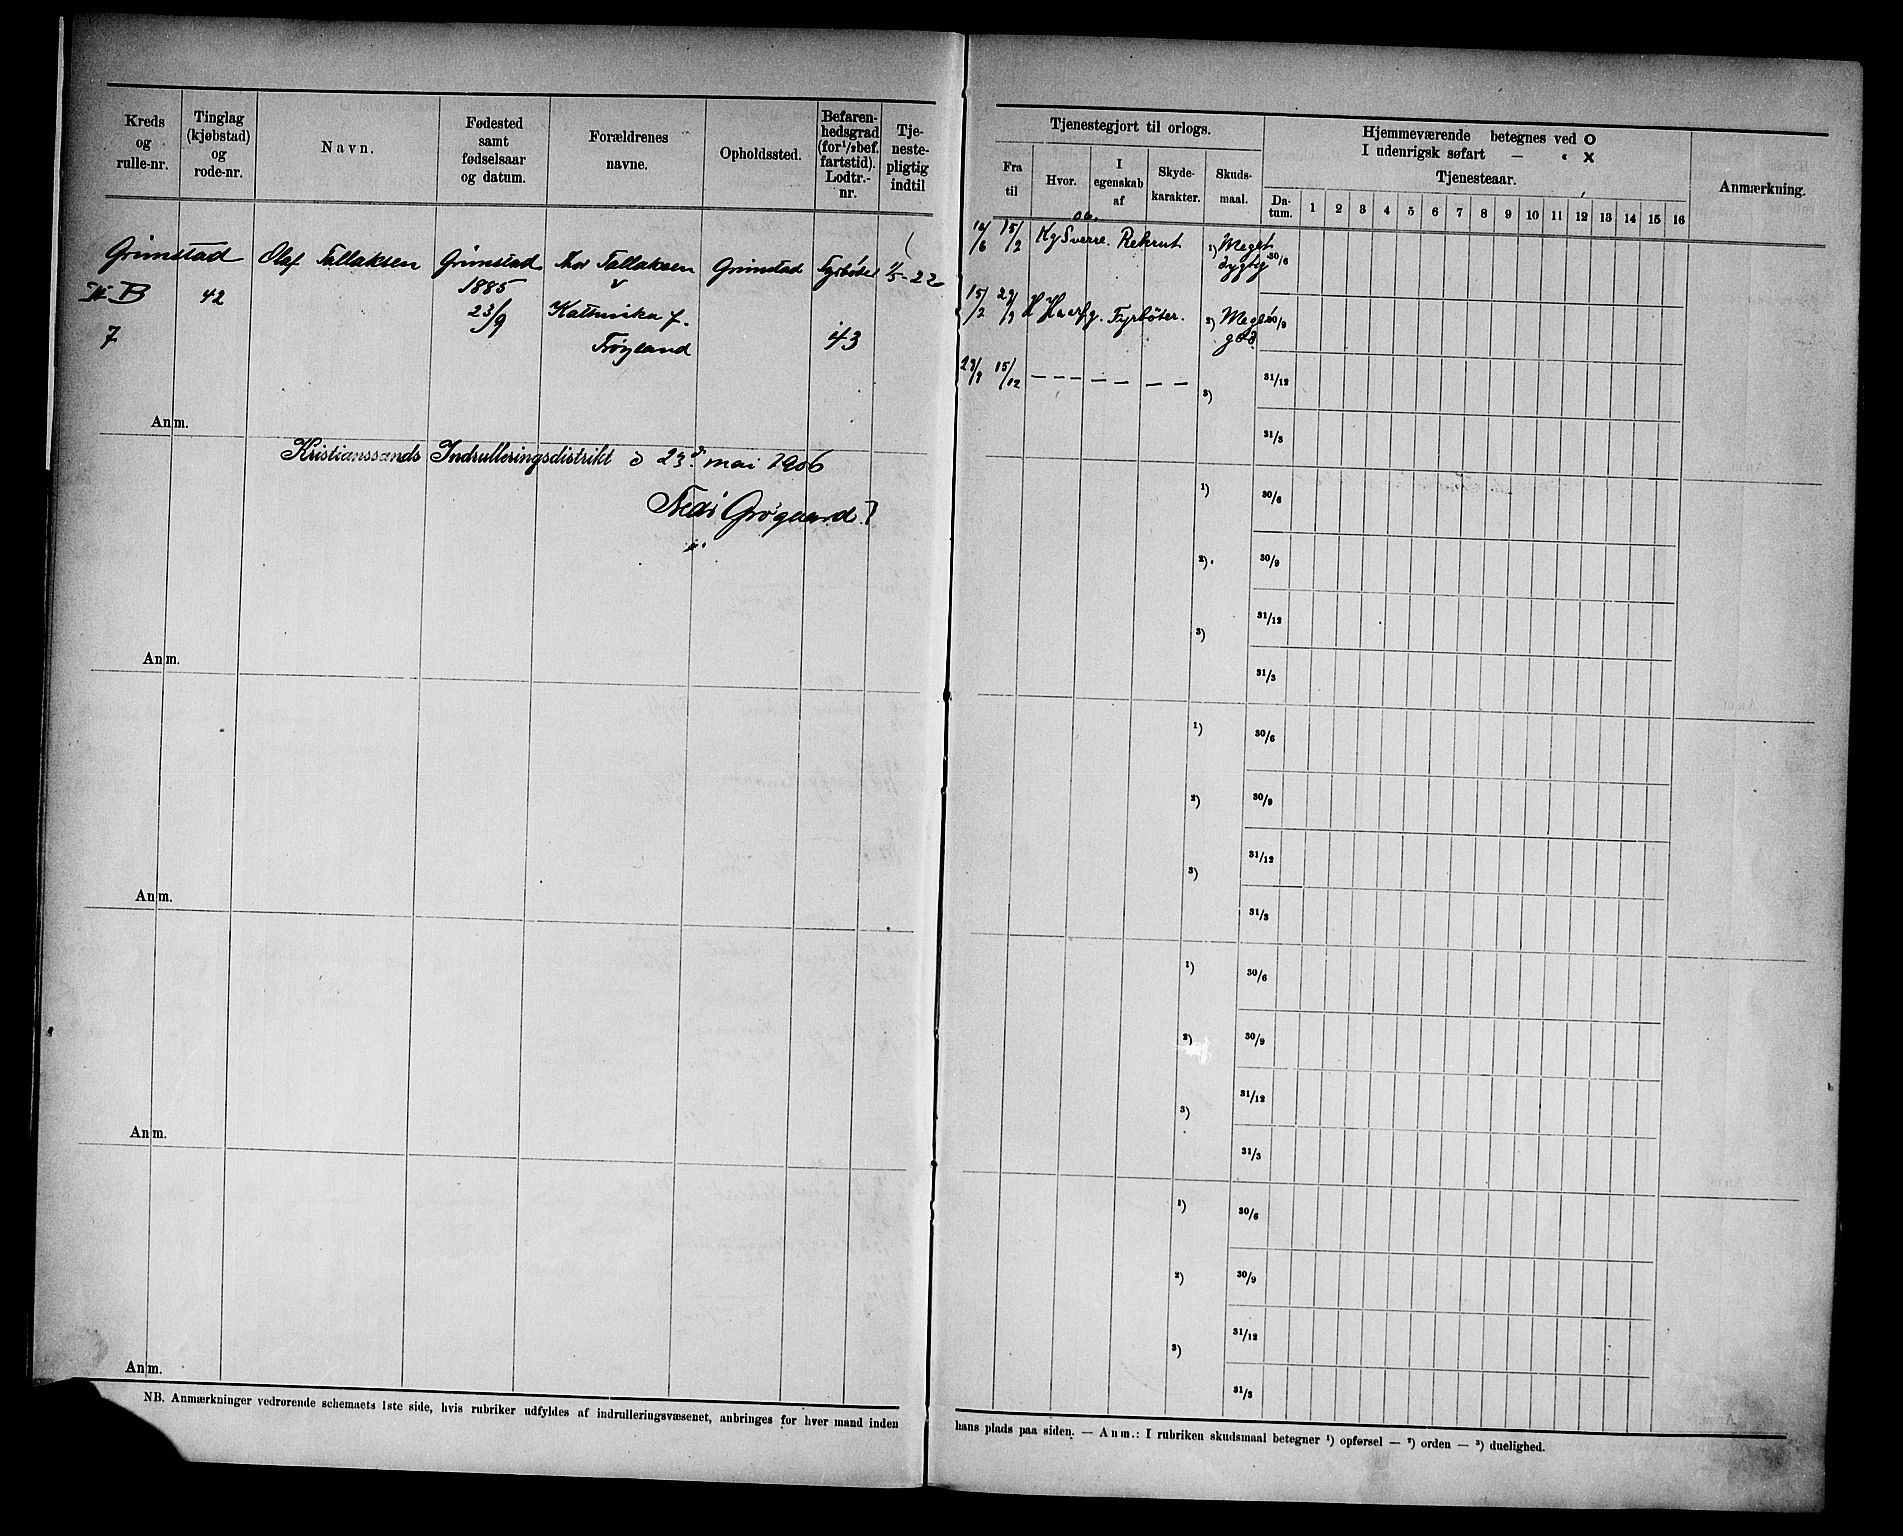 Kreds
og
rulle-nr.
Tinglag
(kjøbstad)
og
rode-nr.
Navn.
Fødested
samt
fødselsaar
og datum.
Forældrenes
navne.
Opholdssted.
Befaren-
hedsgrad
(for ½bef.
fartstid).
Lodtr.-
nr.
Tje-
neste-
pligtig
indtil
Grimstad Olaf Tallaksen Grimstad Thor Tallaksen Grimstad Fyrbøter 1/5-22
B 42 1885 v
23/9 Kathinka f.
7 Frøyland 43
Anm.
Kristianssands Indrulleringsdistrikt d 23d. mai 1906
Fredr Grøgaard
Anm.
Anm.
Anm.
Anm.
NB. Anmærkninger vedrørende schemaets 1ste side, hvis rubriker udfyldes af indrulleringsvæsenet, anbringes for hver mand inden
Tjenestegjort til orlogs.
Fra
til
Hvor.
I
egenskab
af
Skyde-
karakter.
Skuds-
maal.
Hjemmeværende betegnes ved O
I udenrigsk søfart — " X
Tjenesteaar.
Da-
tum. 1 2 3 4 5 6 7 8 9 10 11 12 13 14 15 16
Anmærkning.
06.
15/2 Kg Sverre. Rekrut 1) Meget
dygtig 30/6
15/2 29/9 H Haarfg. Fyrbøter. 2) Meget 30/9
god.
29/9 15/12 — — — — — — — 3) 31/12
31/3
1) 30/6
2) 30/9
3) 31/12
31/3
1) 30/6
2) 30/9
3) 31/12
31/3
1) 30/6
2) 30/9
3) 31/12
31/3
1) 30/6
2) 30/9
3) 31/12
31/3
hans plads paa siden. — Anm.: I rubriken skudsmaal betegner 1) opførsel — 2) orden — 3) duelighed.